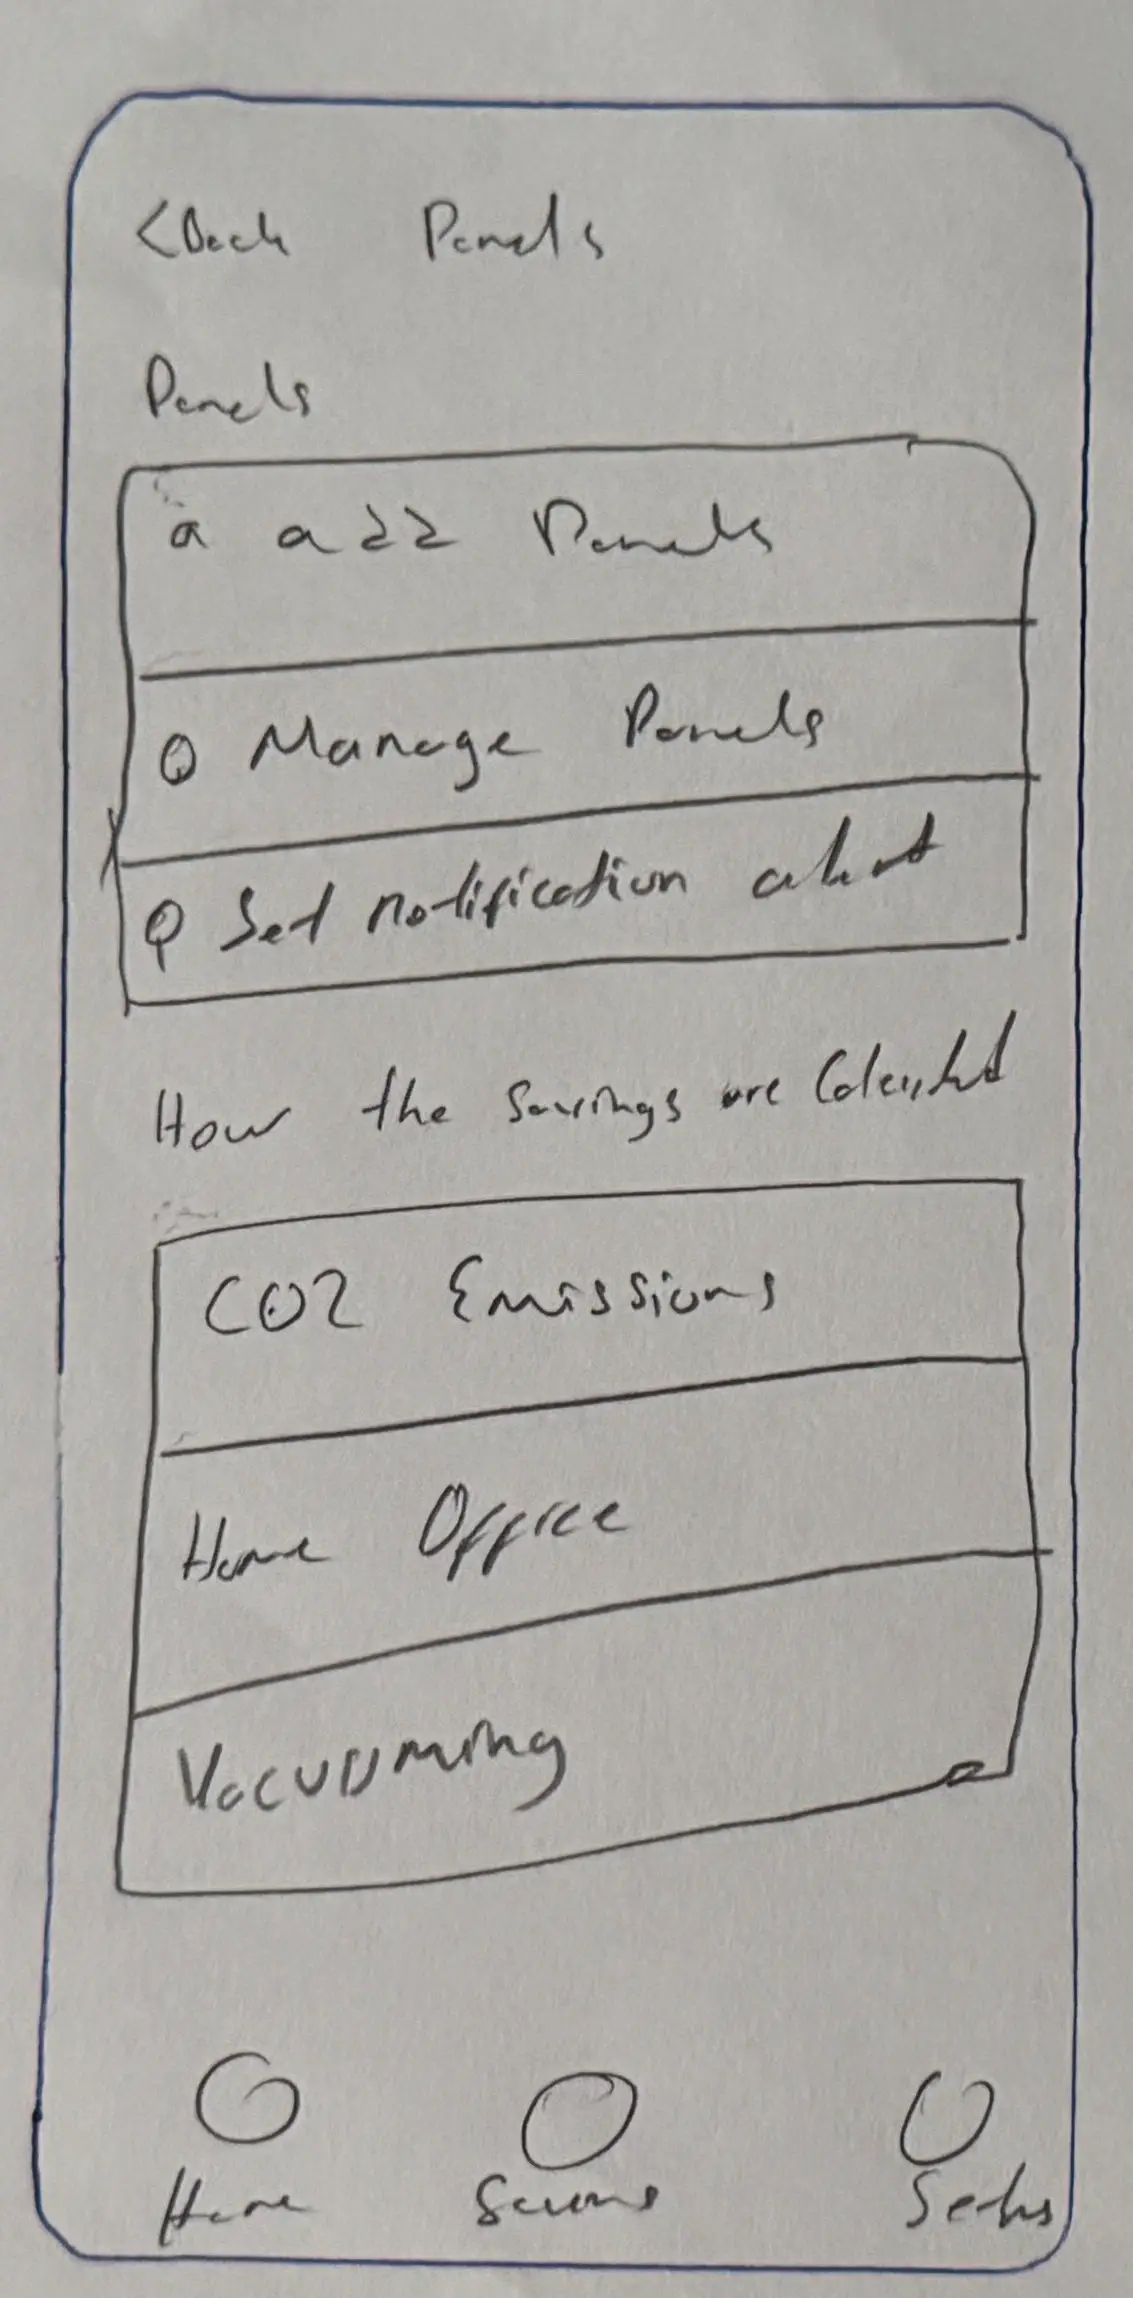 <Back Panels
Panels
add Panels
Manage Panels
Set notification alert
How the savings are
CO2 Emissions
Home Office
Vacuuming
Home